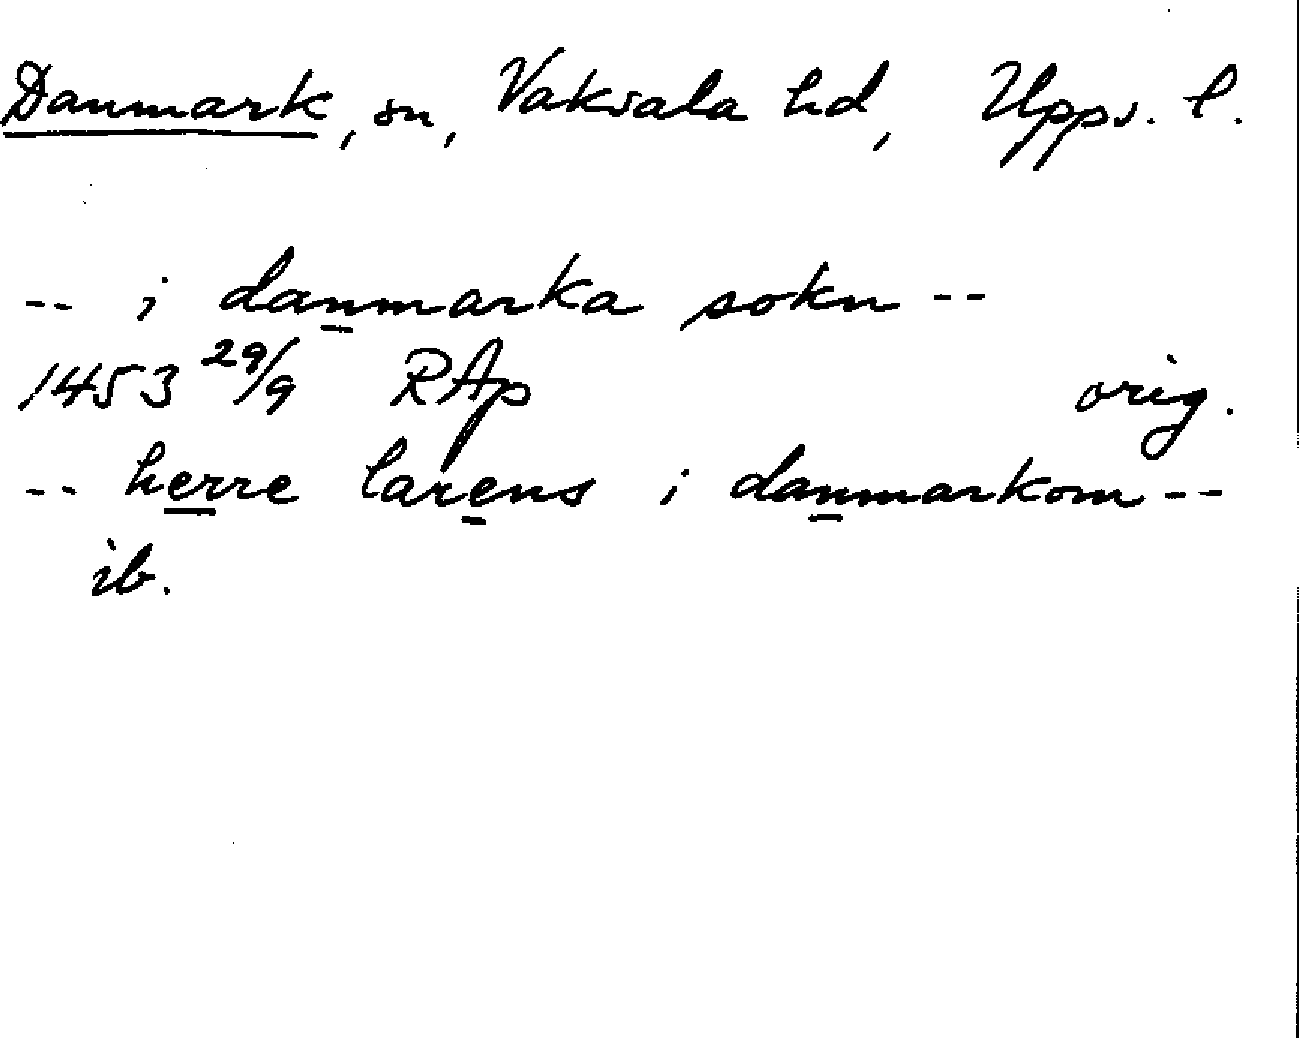 Danmark, sn, Vaksala hd, Upps. l.
-- i danmarka sokn --
1453 29/9 RAp orig.
-- herre larens i danmarkom --
ib.